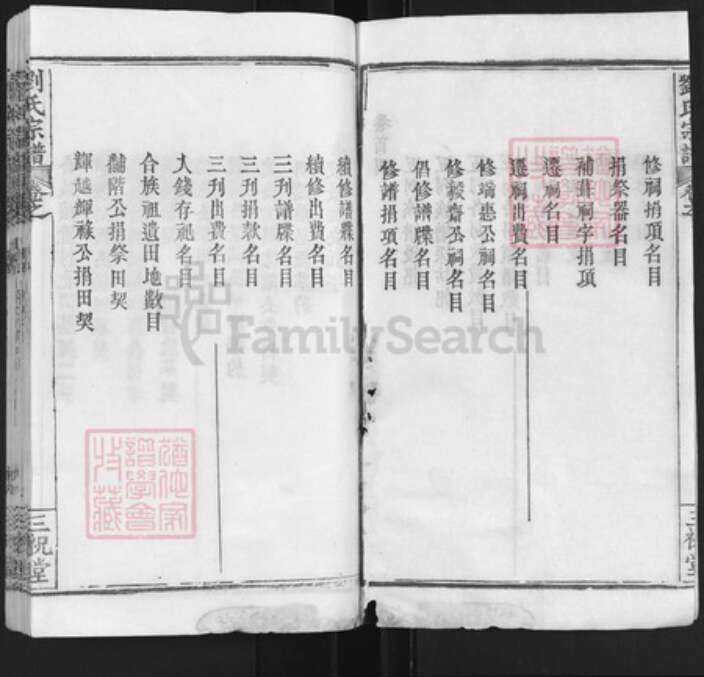 劉氏宗譜
三祝堂
修祠捐項名目
捐祭器名目
補葺祠字捐項
遷祠名目
遷祠出費名目
修端惠公祠名目
修毅齋公祠名目
倡修譜牒名目
修譜捐項名目
續修譜牒名目
續修出費名目
三刋譜牒名目
三刋捐款名目
三刋出費名目
入錢存祀名目
合族祖遺田地數目
儲階公捐祭田契
輝越輝祿公捐田契
劉氏宗譜
三祝堂
FamilySearch